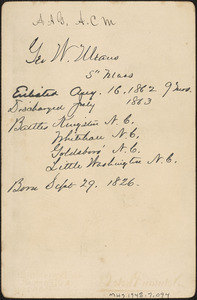 A A B, A. C. M
Geo W. Means
5" Mass
Enlisted Aug. 16. 1862 9 mos.
Discharged July 1863
Battles Kingston N. C.
Whitehall N. C.
Goldsboro' N. C.
Little Washington N. C.
Born Sept 29. 1826.